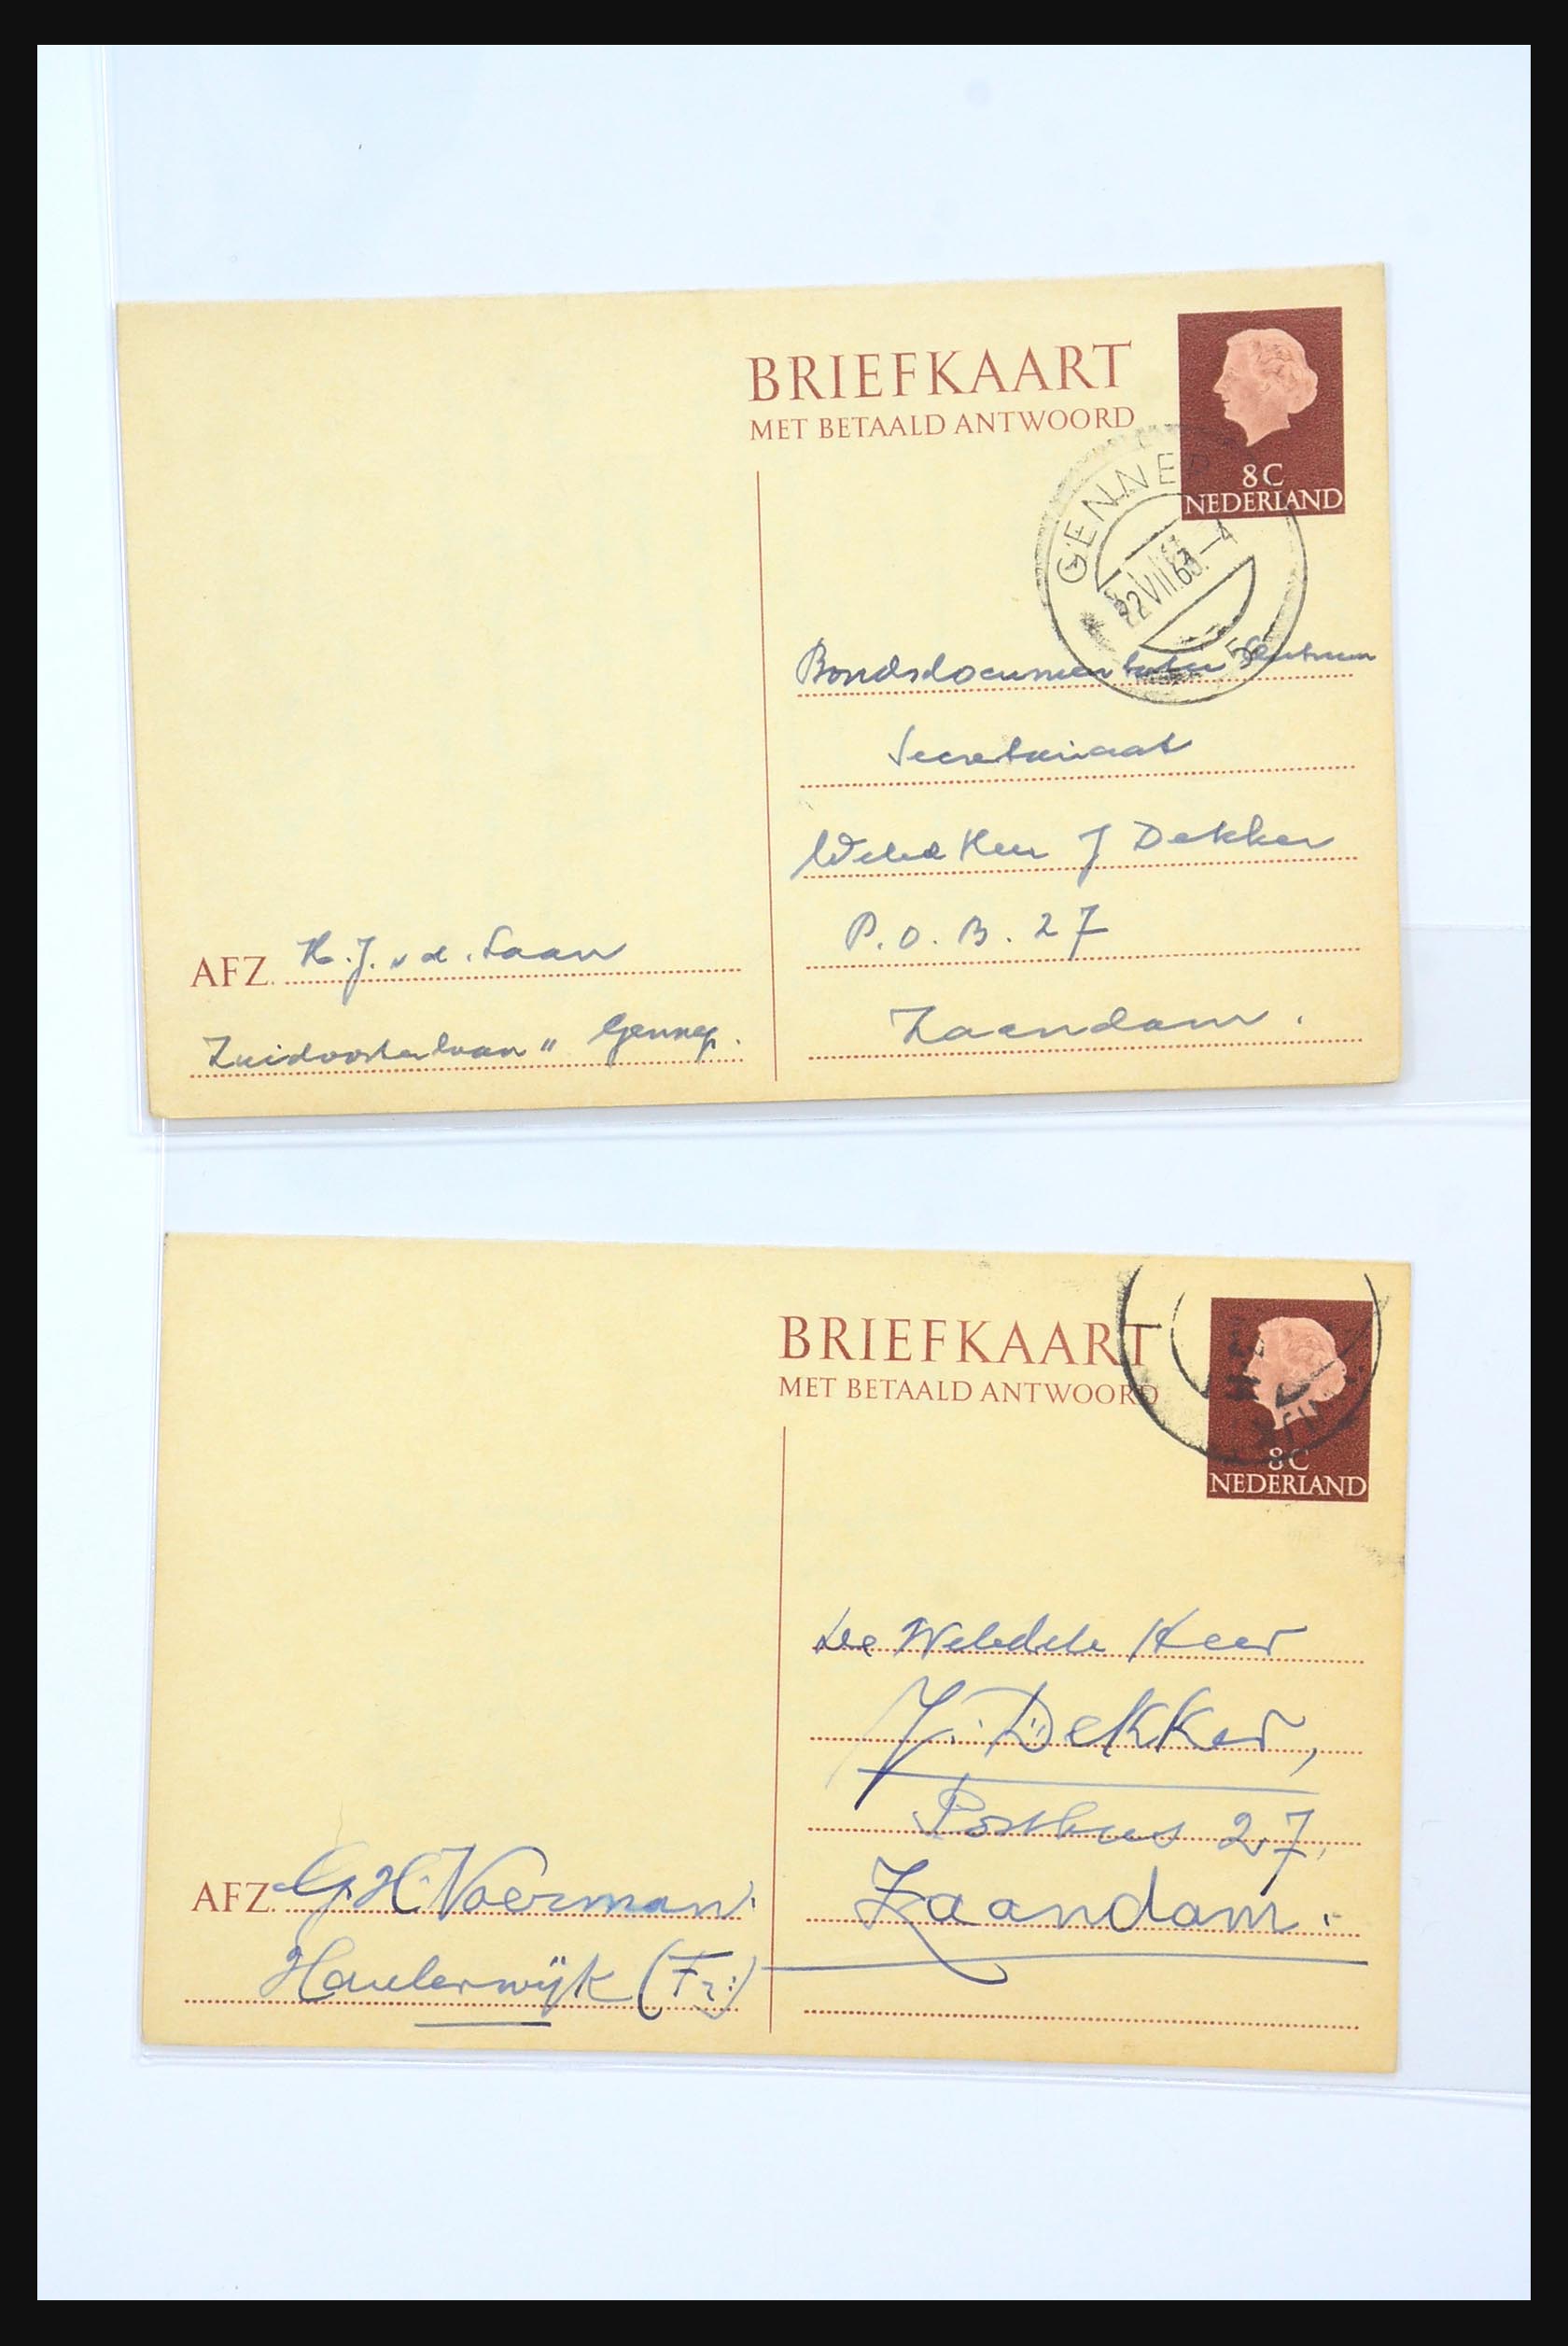 BRIEFKAART
MET BETAALD ANTWOORD
8C
NEDERLAND
GENNEP
22 VII.63.–4
Bondsdocumentatie Centrum
Secretariaat
Weled Heer J Dekker
P.O.B. 27
Zaandam.
AFZ. H.J. v d. Laan
Zuidoosterlaan " Gennep.
BRIEFKAART
MET BETAALD ANTWOORD
8C
NEDERLAND
De Weledele Heer
J. Dekker,
Postbus 27,
Zaandam.
AFZ. G.H. Voerman.
Haulerwijk (Fr.)